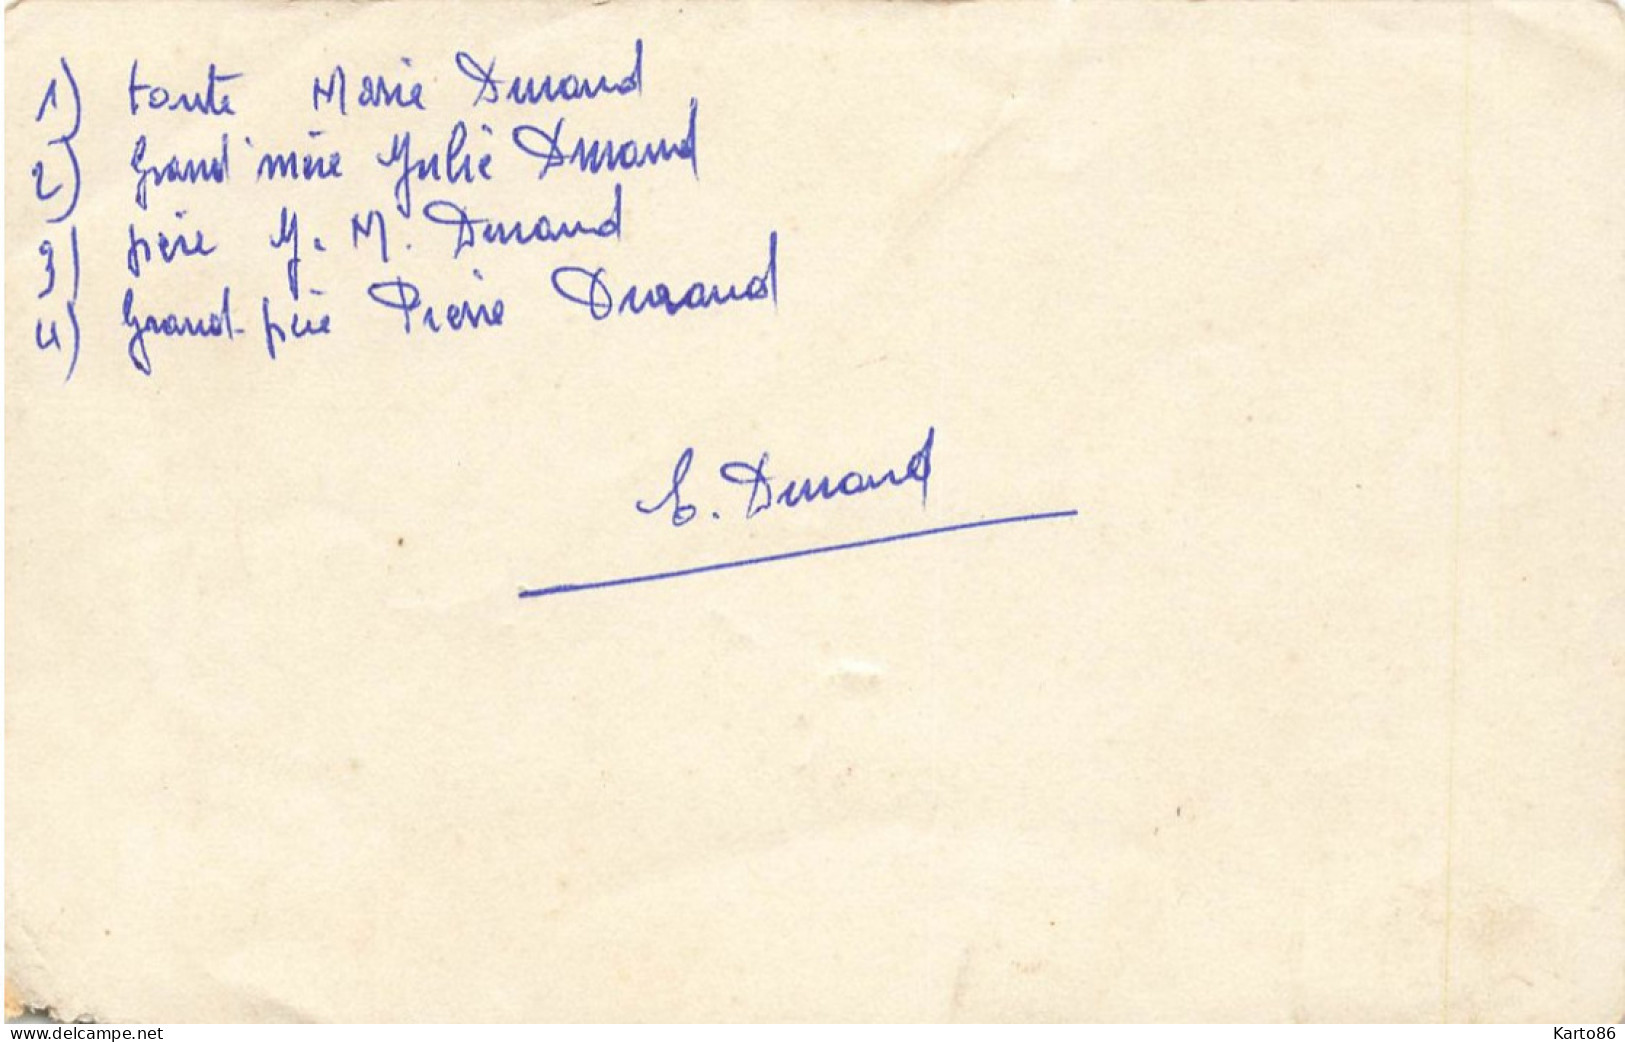 1) tante Marie Durand
2) Grand'mère Julie Durand
3) père J. M. Durand
4) Grand-père Pierre Durand
E. Durand
www.delcampe.net
Karto86